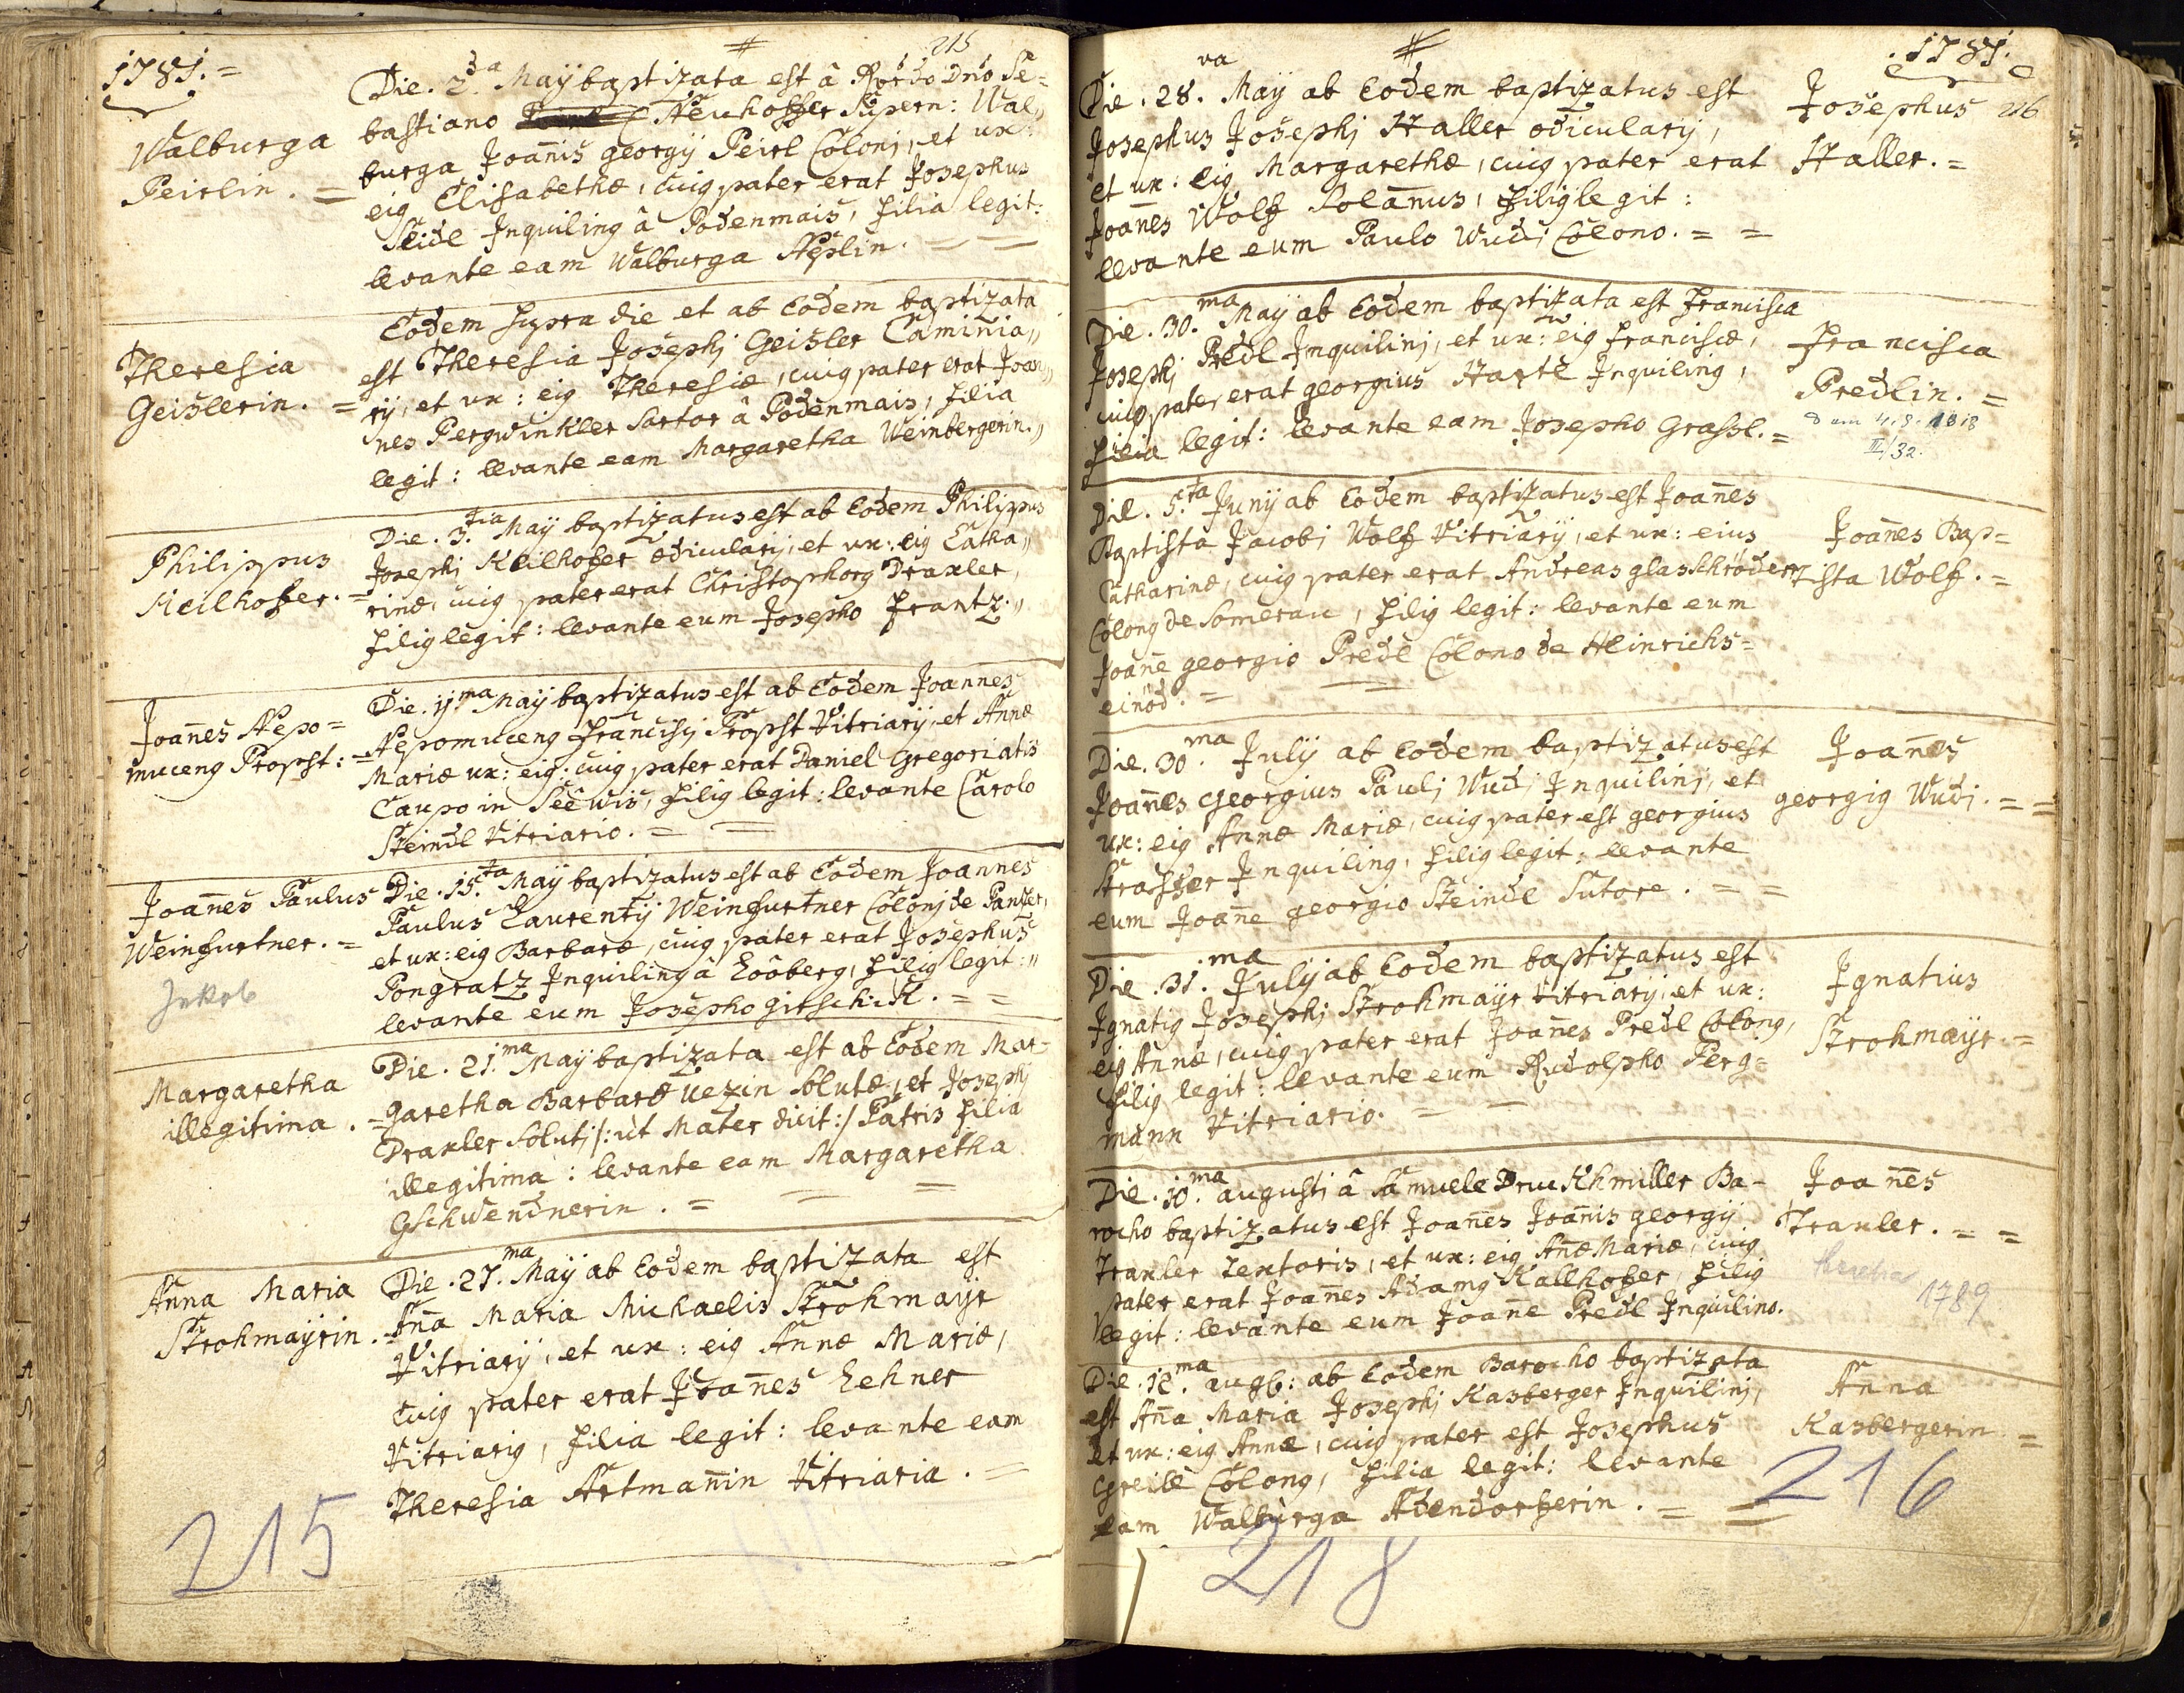 1781.=
#
215
Die. 2da Maÿ baptizata est â Rdo Dno Se=
Walburga
bastiano Neuhoffer Supern: Wal„
Peirlin. =
burga Joanis georgÿ Peirl Colonj, et ux:
eig Elisabethæ, cuig pater erat Josephus
Seidl Inquiling â Podenmais, filia legit:
levante eam Walburga Neslin. = =
Eodem supra die et ab Eodem baptizata
Theresia
est Theresia Josephj Geisler Caminia„
Geislerin. =
rÿ, et ux: eig Theresiæ, cuig pater erat Joan„
nes Pergwinkler Sartor â Podenmais, filia
legit: levante eam Margaretha Weinbergerin.„
Die. 3.tia Maÿ baptizatus est ab Eodem Philippus
Philippus
Josephj Keilhofer ædicularÿ, et ux: eig Catha„
Keilhoffer. =
rinæ, cuig pater erat Christophorg Draxler,
filig legit: levante eum Josepho Frantz.„
Die. 11.ma Maÿ baptizatus est ab Eodem Joannes
Joanes Nepo=
Nepomuceng Francisj Propst Vitriarÿ, et Annæ
muceng Propst: =
Mariæ ux: eig: cuig pater erat Daniel Gregoriatis
Caupo in Seewis, filig legit: levante Carolo
Steindl Vitriario. = =
Joanes Paulus
Die. 15.ta Maÿ baptizatus est ab Eodem Joannes
Weinfurtner. =
Paulus Laurentÿ Weinfurtner Colonj de Panzer,
et ux: eig Barbaræ, cuig pater erat Josephus
Jakob
Pongratz Inquiling â Looberg, filig legit:„
levante eum Josepho Gitschik. = =
Die. 21.ma Maÿ baptizata est ab Eodem Mar=
Margaretha
garetha Barbaræ Vezin Solutæ, et Josephj
illegitima. =
Draxler Solutj /: ut Mater dicit :/ Patris filia
illegitima: levante eam Margaretha
Gschwendnerin. = = =
Anna Maria
Die. 27.ma Maÿ ab Eodem baptizata est
Strohmaÿrin. =
Aña Maria Michaelis Strohmaÿr
Vitriarÿ, et ux: eig Annæ Mariæ,
cuig pater erat Joanes Lehner
Vitriarig, filia legit: levante eam
Theresia Artmañin Vitriaria. =
215
#
.1781.
Die. 28.va Maÿ ab Eodem baptizatus est
Josephus 216
Josephus Josephj Haller ædicularÿ,
Haller. =
et ux: eig Margarethæ, cuig pater erat
Joanes Wolf Solanus, filig legit:
levante eum Paulo Wudj Colono. = =
Die. 30.ma Maÿ ab Eodem baptizata est Francisca
Josephj Predl Inquilinj, et ux: eig Franciscæ,
Francisca
cuig pater erat georgius Hartl Inquiling,
Predlin. =
filia legit: levante eam Josepho Grassl. =
∞ am 4.8.1818
II/32.
Die. 5.ta Junÿ ab Eodem baptizatus est Joanes
Joanes Bap=
Baptista Jacobj Wolf Vitriarÿ, et ux: eius
tista Wolf. =
Catharinæ, cuig pater erat Andreas glasschröder,
Colong de Somerau, filig legit: levante eum
Joane georgio Predl Colono de Heinrichs=
einöd. = =
Die. 30.ma Julÿ ab Eodem baptizatus est
Joanes
Joanes Georgius Paulj Wudj Inquilinj, et
georgig Wudj. = =
ux: eig Annæ Mariæ, cuig pater est georgius
Strasser Inquiling, filig legit: levante
eum Joane georgio Steindl Sutore. = =
Die. 31.ma Julÿ ab Eodem baptizatus est
Ignatius
Ignatig Josephj Strohmaÿr Vitriarÿ, et ux:
Strohmaÿr. =
eig Annæ, cuig pater erat Joanes Predl Colong,
filig legit: levante eum Rudolpho Perg=
mann Vitriario. = =
Die. 10.ma augustj â Samuele Druckhmiller Ba=
Joanes
rocho baptizatus est Joanes Joanis georgÿ
Traxler. = =
Traxler Textoris, et ux: eig Añæ Mariæ, cuig
pater erat Joanes Adamg Kallhofer, filig
1789
legit: levante eum Joane Predl Inquilino.
Die. 12.ma augb: ab Eodem Barocho baptizata
Anna
est Aña Maria Josephj Kasberger Inquilinj,
Kasbergerin =
et ux: eig Annæ, cuig pater est Josephus
Greill Colong, filia legit: levante
216
eam Walburga Adendorferin. = =
218